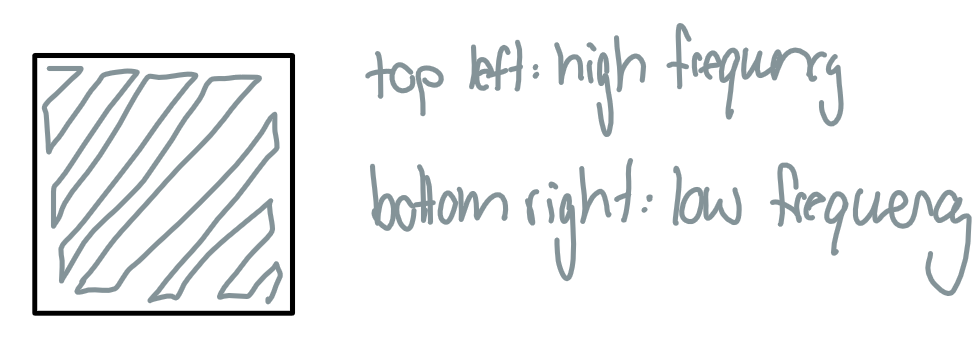 top left: high frequency
bottom right: low frequency